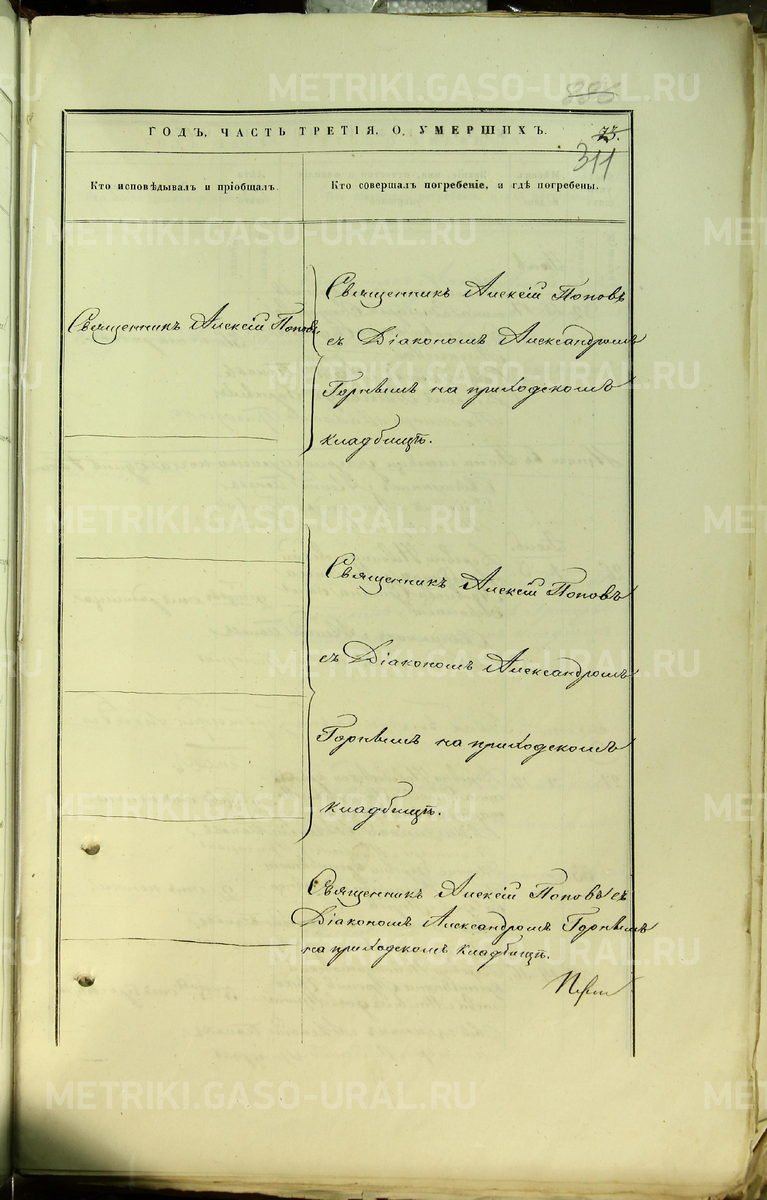 METRIKI.GASO-URAL.RU
885
ГОДЪ, ЧАСТЬ ТРЕТІЯ, О УМЕРШИХЪ.
311
Кто исповѣдывалъ и пріобщалъ.
Кто совершалъ погребеніе, и гдѣ погребены.
Священникъ Алексій Поповъ
Священникъ Алексій Поповъ
съ Діакономъ Александромъ
на приходскомъ
кладбищѣ.
Священникъ Алексій Поповъ
съ Діакономъ Александромъ
на приходскомъ
кладбищѣ.
Священникъ Алексій Поповъ съ
Діакономъ Александромъ
на приходскомъ кладбищѣ.